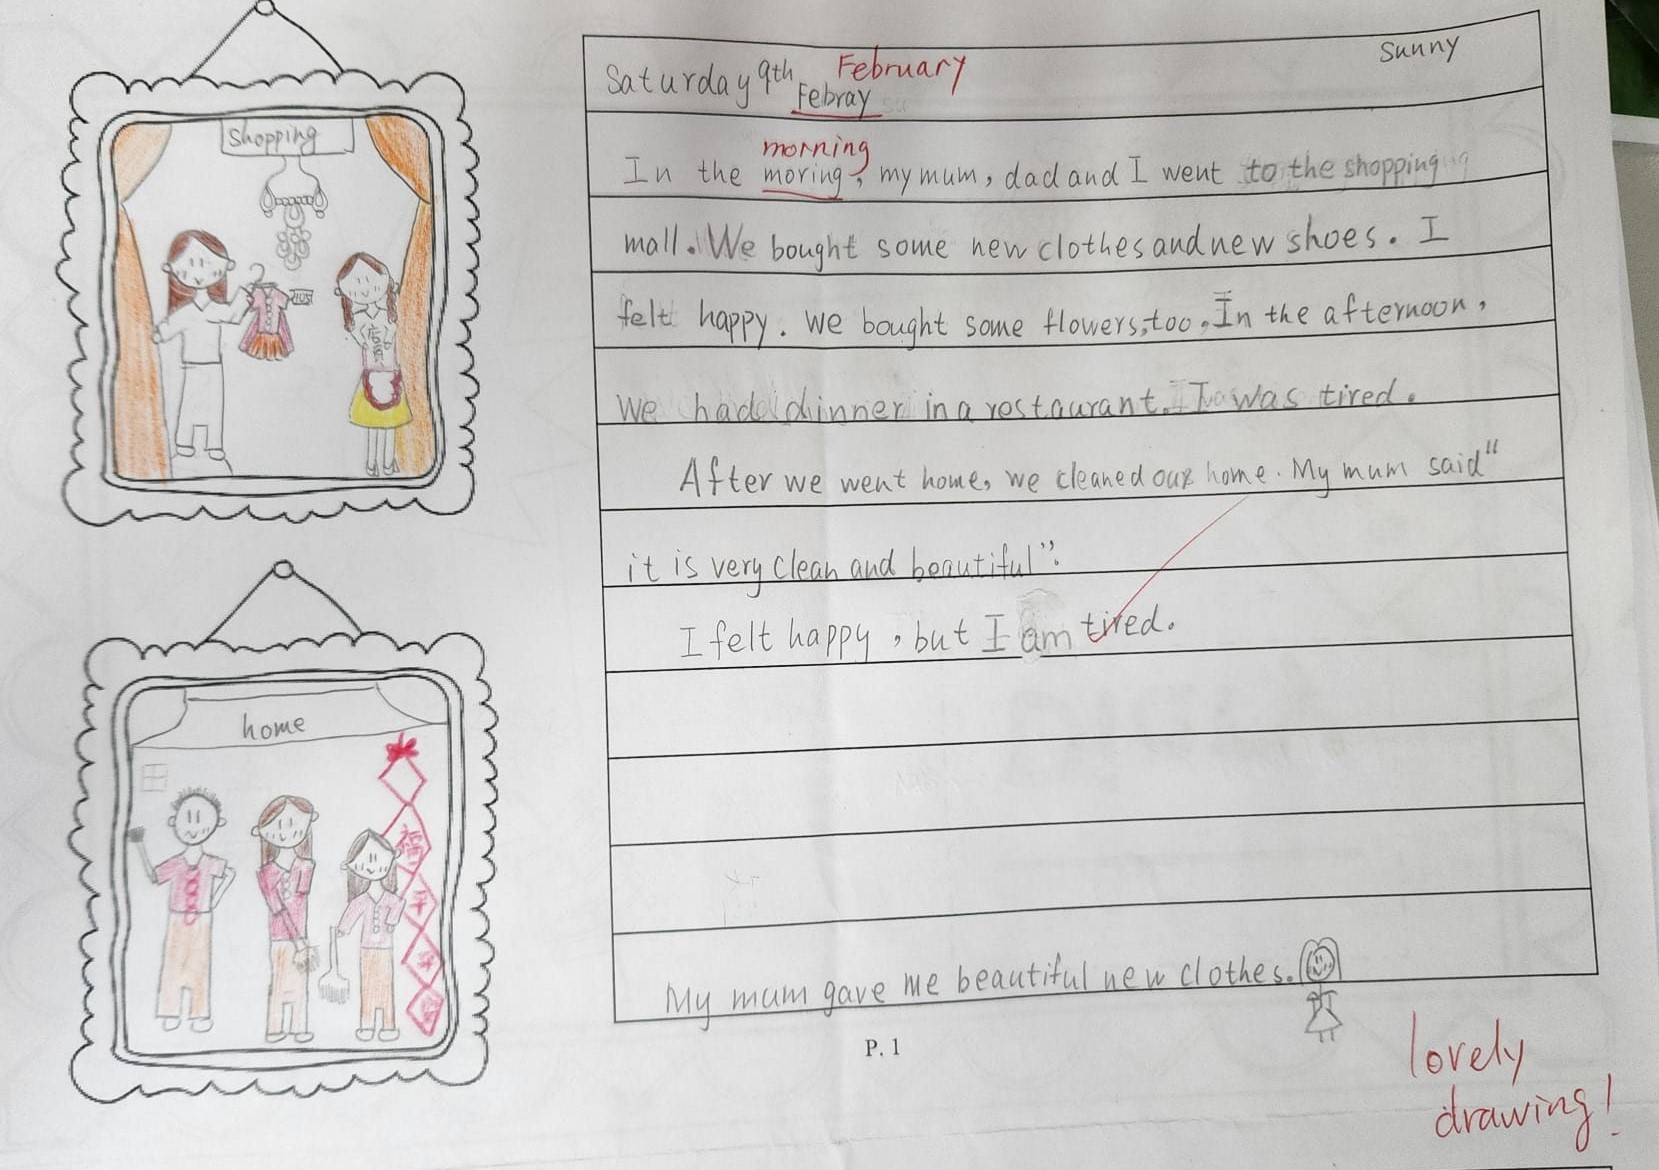 Shopping
店員
home
福
Sunny
February
Saturday 9th Febray
morning
In the moring, my mum, dad and I went to the shopping
mall. We bought some new clothes and new shoes. I
felt happy. We bought some flowers, too. In the afternoon,
we had dinner in a restaurant. I was tired.
After we went home, we cleaned our home. My mum said"
it is very clean and beautiful".
I felt happy, but I am tired.
My mum gave me beautiful new clothes.
P. 1
lovely
drawing!